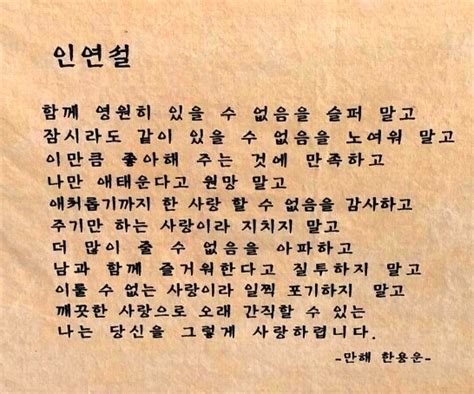 인연설
함께 영원히 있을 수 없음을 슬퍼 말고
잠시라도 같이 있을 수 없음을 노여워 말고
이만큼 좋아해 주는 것에 만족하고
나만 애태운다고 원망 말고
애처롭기까지 한 사랑 할 수 없음을 감사하고
주기만 하는 사랑이라 지치지 말고
더 많이 줄 수 없음을 아파하고
남과 함께 즐거워한다고 질투하지 말고
이룰 수 없는 사랑이라 일찍 포기하지 말고
깨끗한 사랑으로 오래 간직할 수 있는
나는 당신을 그렇게 사랑하렵니다.
-만해 한용운-